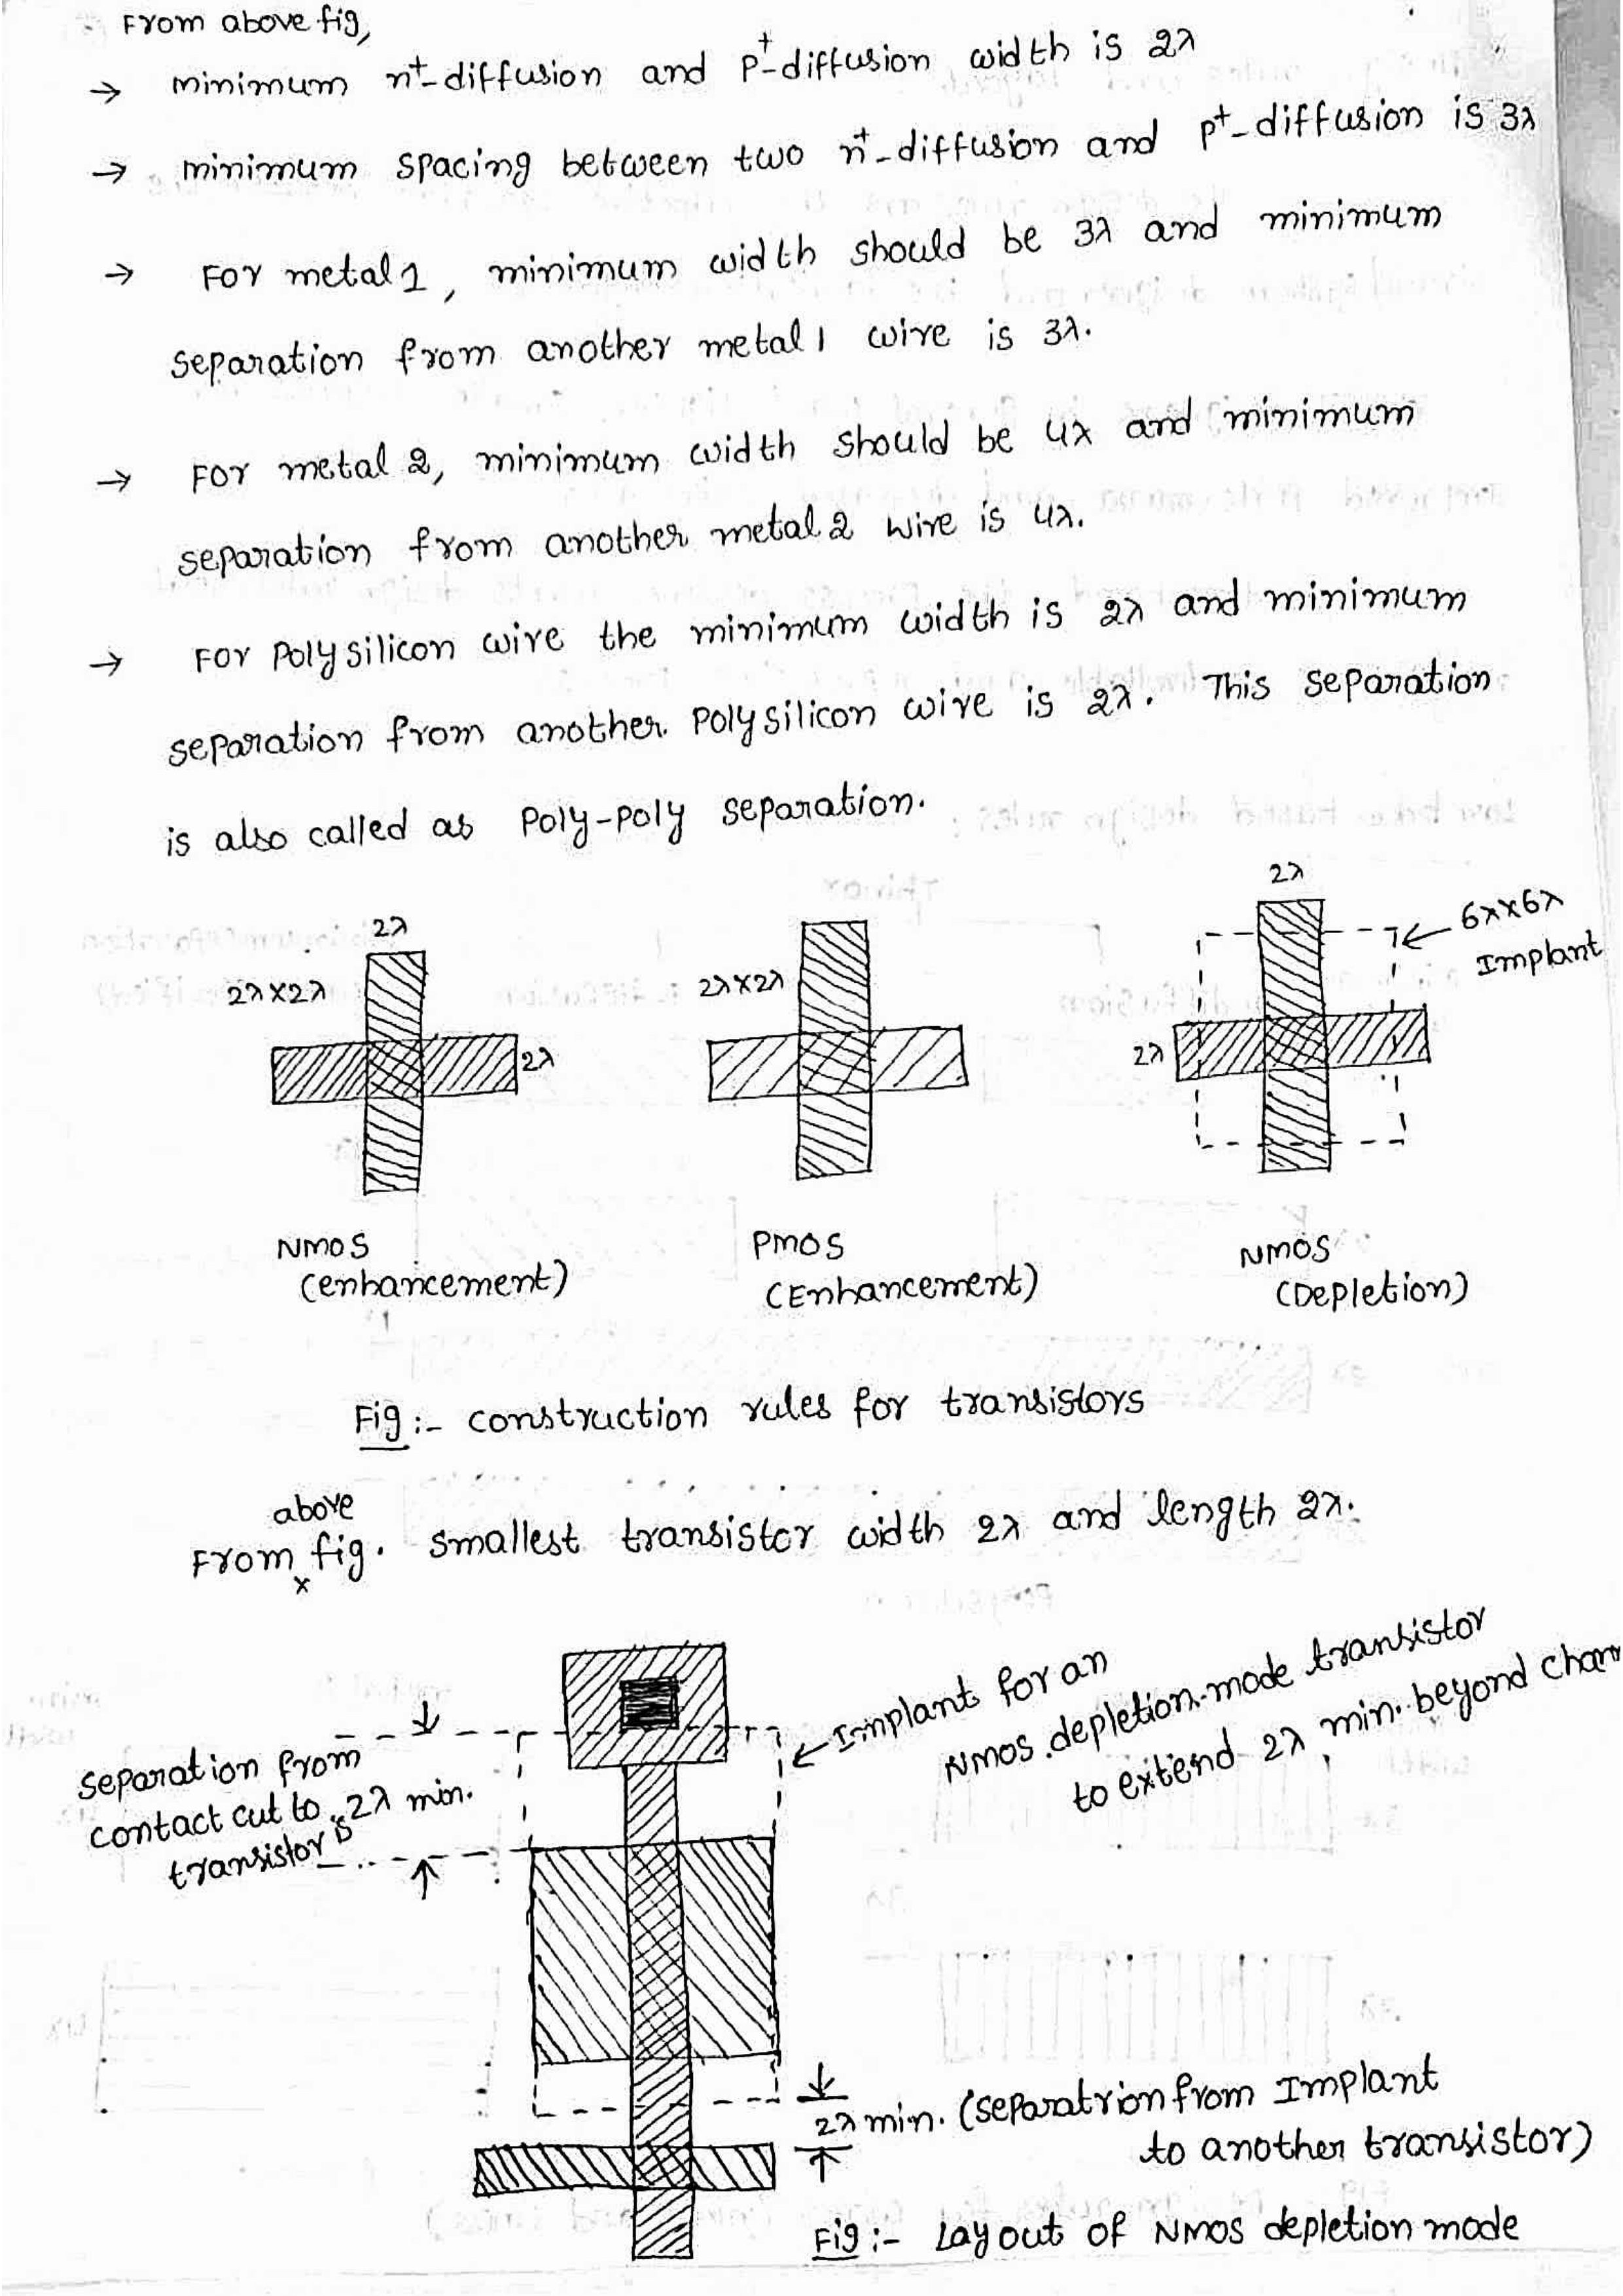 From above fig,
→ minimum n⁺-diffusion and p⁺-diffusion width is 2λ
→ minimum spacing between two n⁺-diffusion and p⁺-diffusion is 3λ
→ For metal 1, minimum width should be 3λ and minimum
separation from another metal 1 wire is 3λ.
→ For metal 2, minimum width should be 4λ and minimum
separation from another metal 2 wire is 4λ.
→ For Polysilicon wire the minimum width is 2λ and minimum
separation from another Polysilicon wire is 2λ. This separation
is also called as Poly-Poly separation.
2λ
2λ×2λ
2λ
2λ×2λ
2λ
6λ×6λ
Implant
2λ
NMOS
(enhancement)
PMOS
(Enhancement)
NMOS
(Depletion)
Fig:- construction rules for transistors
above
From fig. smallest transistor width 2λ and length 2λ.
Separation from
contact cut to 2λ min.
transistor is
Implant for an
NMOS depletion-mode transistor
to extend 2λ min. beyond chan
2λ min. (separatrion from Implant
to another transistor)
Fig:- Layout of NMOS depletion mode